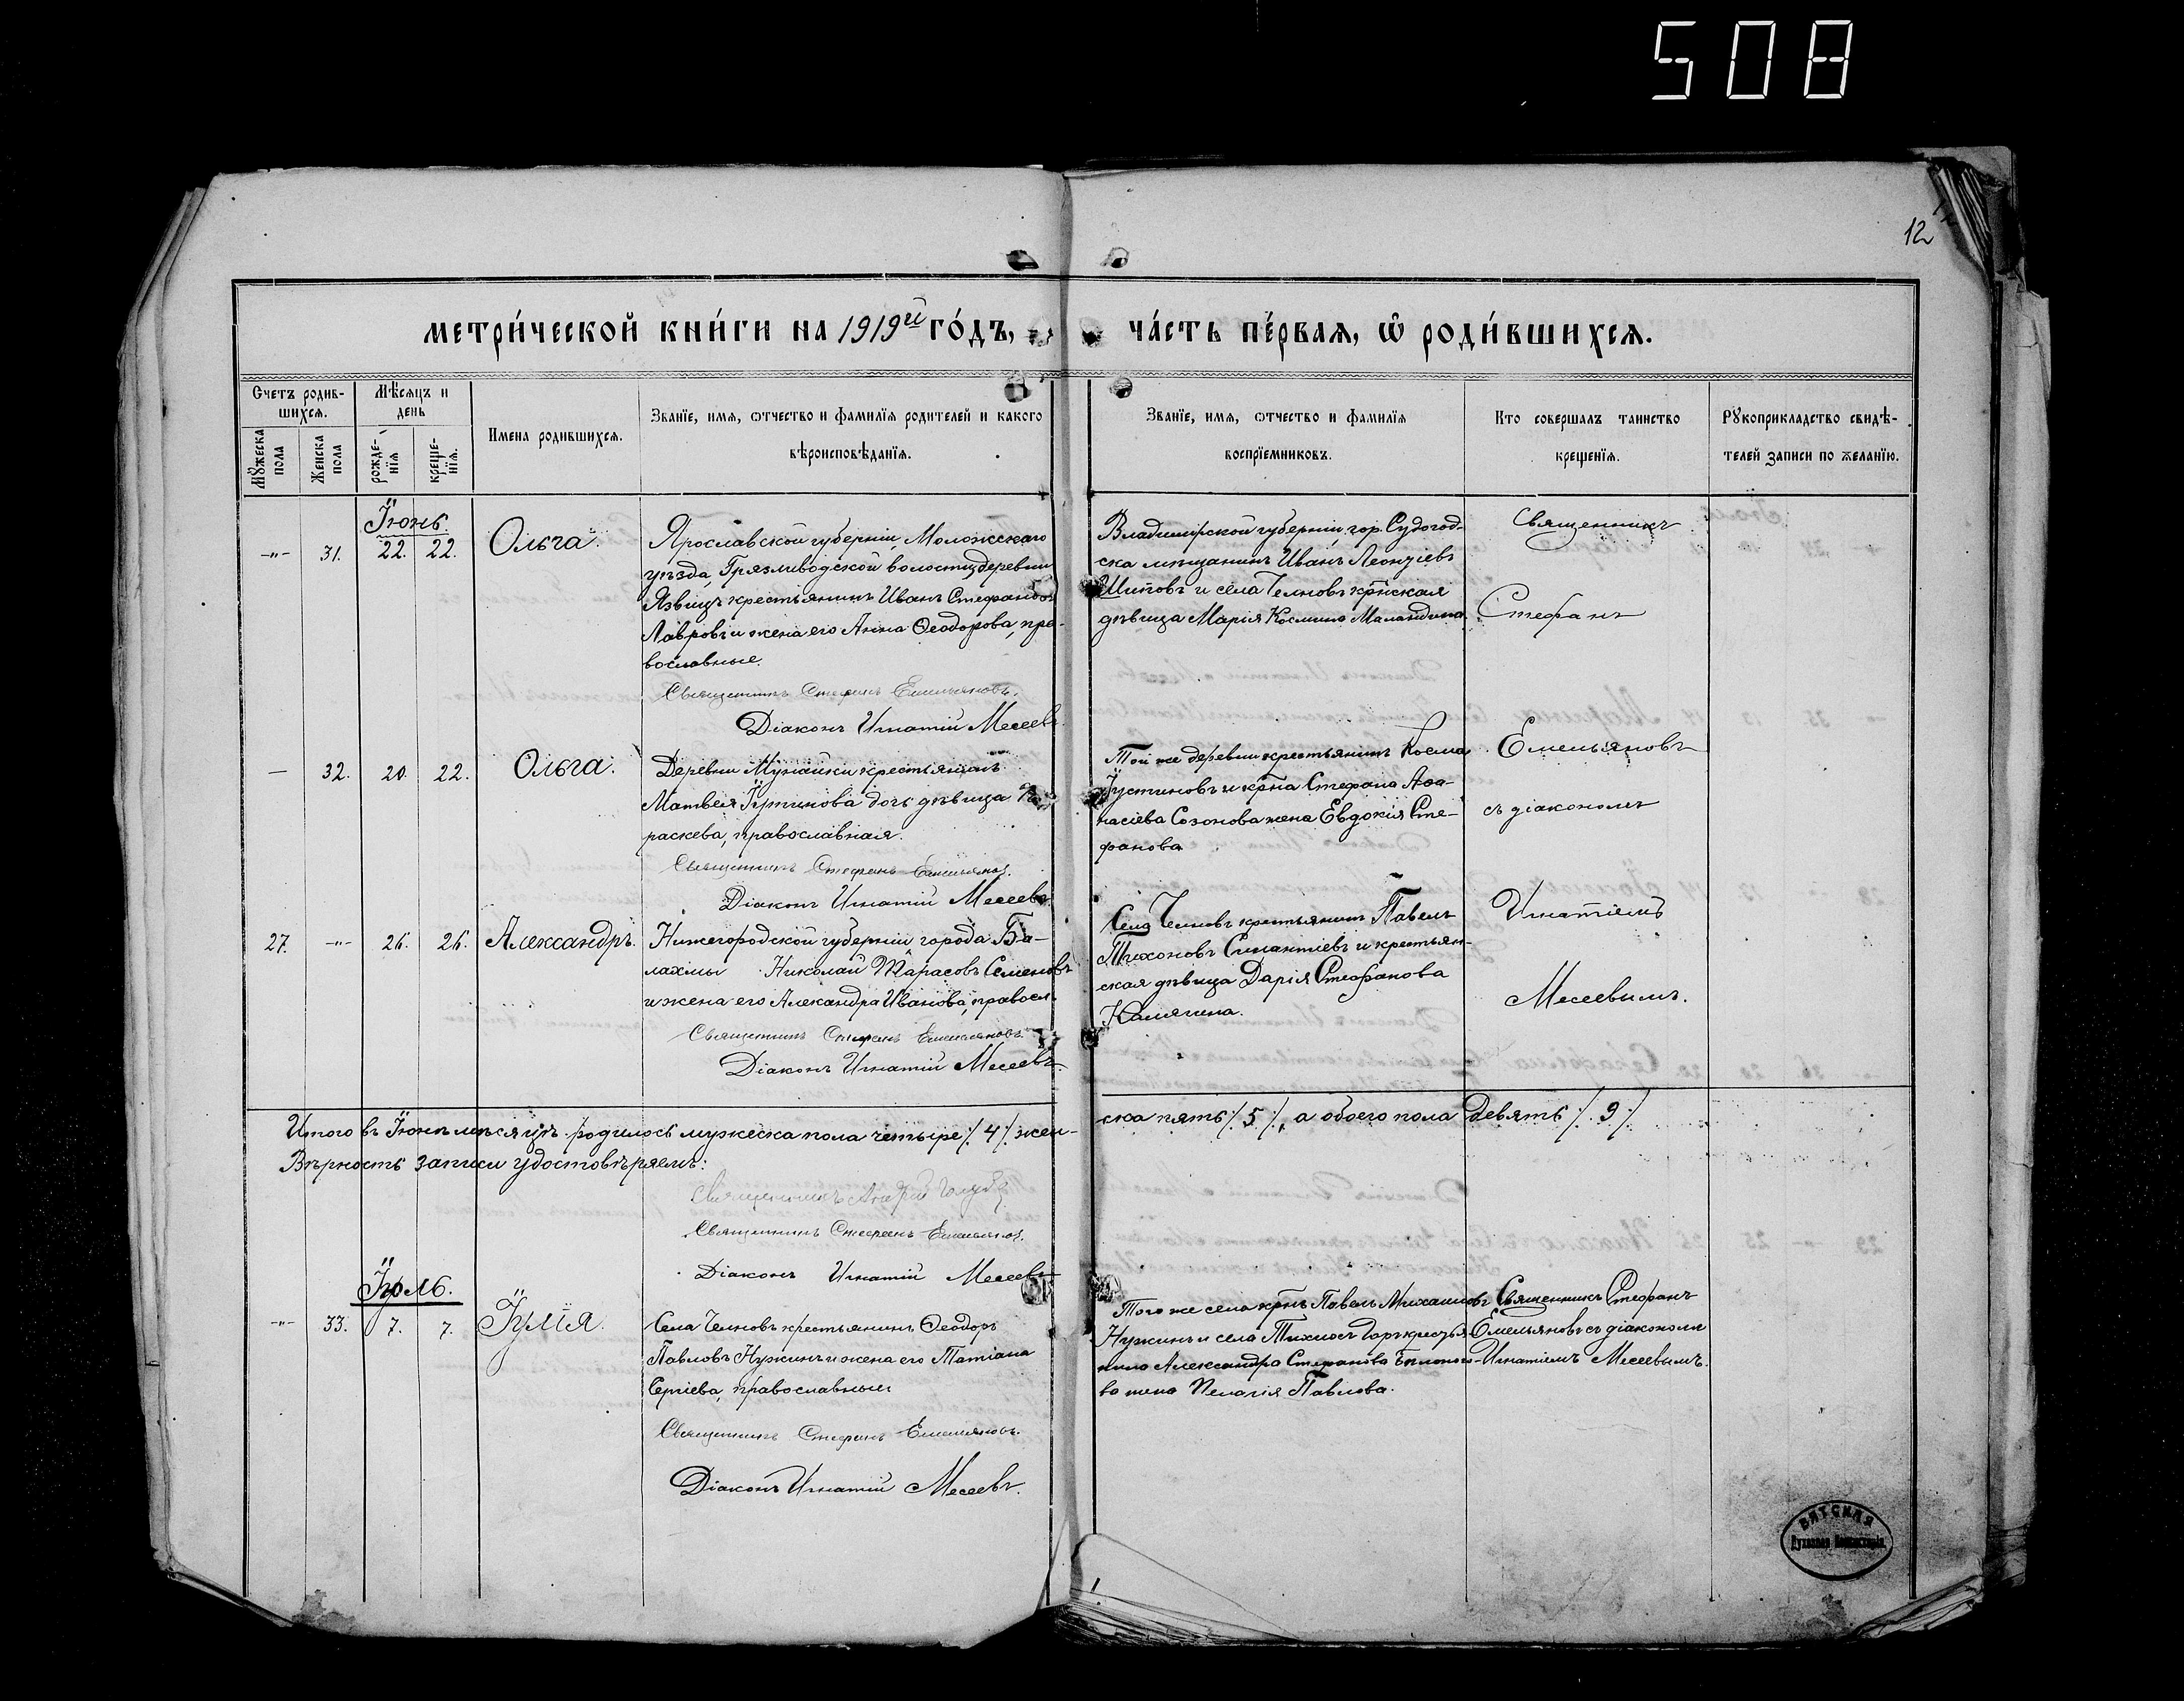 508
12
МЕТРИ́ЧЕСКОЙ КНИ́ГИ НА 1919й ГО́ДЪ,
ЧА́СТЬ ПЕ́РВАЯ, Ѿ РОДИ́ВШИХСЯ.
Счетъ родив-
шихся.
Мужеска
пола
Женска
пола
Мѣсяцъ и
день
рожде-
нїя
креще-
нїя.
Имена родившихся.
Званїе, имя, отчество и фамилїя родителей и какого
вѣроисповѣданїя.
Званїе, имя, отчество и фамилїя
воспрїемниковъ.
Кто совершалъ таинство
крещенїя.
Рукоприкладство свидѣ-
телей записи по желанїю.
Іюнь.
-"- 31. 22. 22. Ольга.
Ярославской губерніи, Моложскаго
уѣзда, Грязливодской волости, деревни
Язвицъ крестьянинъ Иванъ Стефановъ
Лавровъ и жена его Анна Ѳеодорова, пра-
вославные.
Священникъ Стефанъ Емельяновъ.
Діаконъ Игнатій Месеевъ
Владимирской губерніи, гор. Судогод-
ска мѣщанинъ Иванъ Леонтіевъ
Шиповъ и села Челновъ кр̃нская
дѣвица Марія Космина
Священникъ
Стефанъ
— 32. 20. 22. Ольга.
Деревни крестьянина
Матвея дочь дѣвица Па-
раскева, православная.
Священникъ Стефанъ Емельяновъ.
Діаконъ Игнатій Месеевъ
Той же деревни крестьянинъ Косма
Іустиновъ и кр̃на Стефана Аѳа-
насіева Созонова жена Евдокія Сте-
фанова
Емельяновъ
съ діакономъ
27. -"- 26. 26. Александръ.
Нижегородской губерніи города Ба-
лахны Николай Тарасовъ Семеновъ
и жена его Александра Иванова, правосл.
Священникъ Стефанъ Емельяновъ.
Діаконъ Игнатій Месеевъ
Села Челновъ крестьянинъ Павелъ
Тихоновъ и крестьян-
ская дѣвица Дарія Стефанова
Калягина.
Игнатіемъ
Месеевымъ.
Итого въ Іюнѣ мѣсяцѣ родилось мужеска пола четыре /. 4 /. жен-
ска пять /. 5 /., а обоего пола девять /. 9 /.
Вѣрность записи удостовѣряемъ:
Священникъ Андрей
Священникъ Стефанъ Емельяновъ.
Діаконъ Игнатій Месеевъ
Іюль.
-"- 33. 7. 7. Іулія.
Села Челновъ крестьянинъ Ѳеодоръ
Павловъ Нужинъ и жена его Татіана
Сергіева, православные
Священникъ Стефанъ Емельяновъ.
Діаконъ Игнатій Месеевъ.
Того же села кр̃нъ Павелъ Михаиловъ
Нужинъ и села крестья-
нина Александра Стефанова
ва жена Пелагія Павлова.
Священникъ Стефанъ
Емельяновъ съ діакономъ
Игнатіемъ Месеевымъ.
ВЯТСКАЯ
Духовная Консисторія